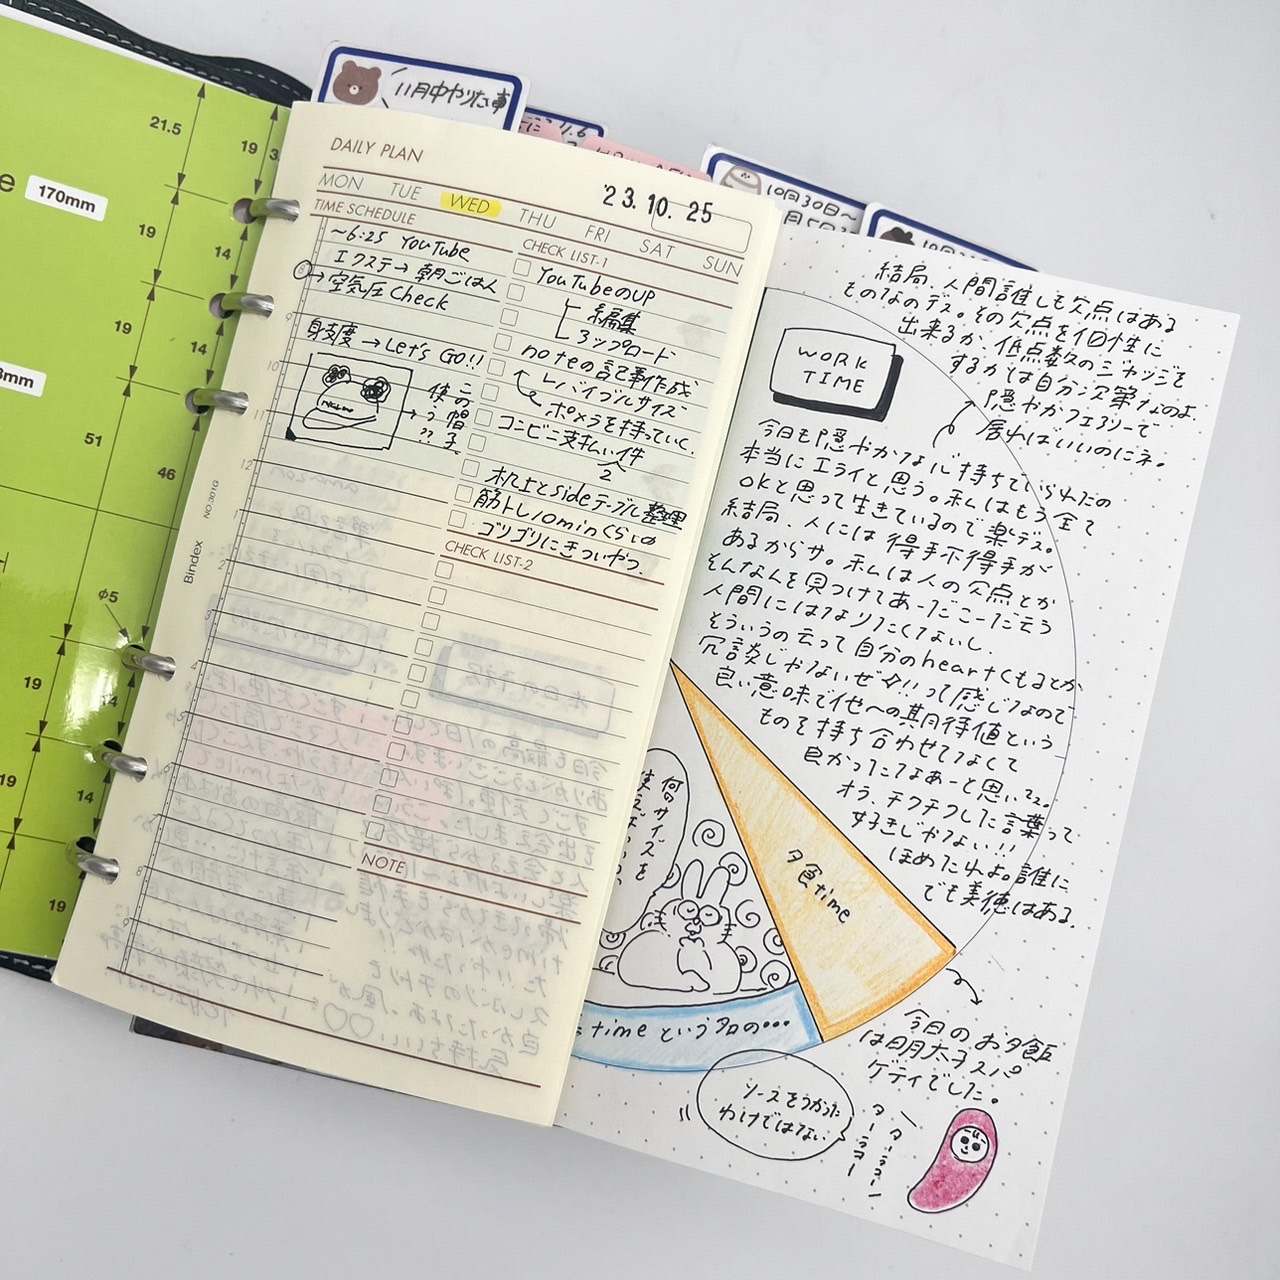 11月中やりたい事
10月30日〜
21.5
19
3
e
170mm
19
14
19
14
3mm
51
46
φ5
19
14
19
14
19
Bindex
NO.301G
DAILY PLAN
'23.10.25
MON TUE WED THU FRI SAT SUN
TIME SCHEDULE
〜6:25 YouTube
エクステ→朝ごはん
→空気圧check
身支度→Let's GO!!
この帽子
使う??
8
9
10
11
12
1
2
3
4
5
6
7
8
9
CHECK LIST-1
YouTubeのUP
編集
アップロード
noteの記事作成
レバイブルサイズ
ポメラを持っていく.
コンビニ支払い件
2
机上とsideテーブル整理
筋トレ10minくらいの
ゴリゴリにきついやつ.
CHECK LIST-2
NOTE
結局、人間誰しも欠点はある
ものなのデス。その欠点を個性に
出来るか、低点数のジャッジを
するかは自分次第なのよ.
隠やかフェスリーで
居ればいいのにネ。
WORK
TIME
今日も隠やかな心持ちでいられたの
本当にエライと思う。私はもう全て
OKと思って生きているので楽デス。
結局、人には得手不得手が
あるからサ。私は人の欠点とか
そんなんを見つけてあーだこーだ云う
人間にはなりたくないし.
そういうの云って自分のheartくもるとか
冗談じゃないぜ!!って感じなので
良い意味で他への期待値という
ものを持ち合わせてなくて
良かったなあーと思いマス.
オラ、チクチクした言葉って
好きじゃない!!
ほめたれよ。誰に
でも美徳はある.
夕食time
何サイズを
timeというタロの…
今日のお夕飯
は明太子スパ
ゲティでした。
ソースをうかった
わけではない
ターラコー
ターラコー